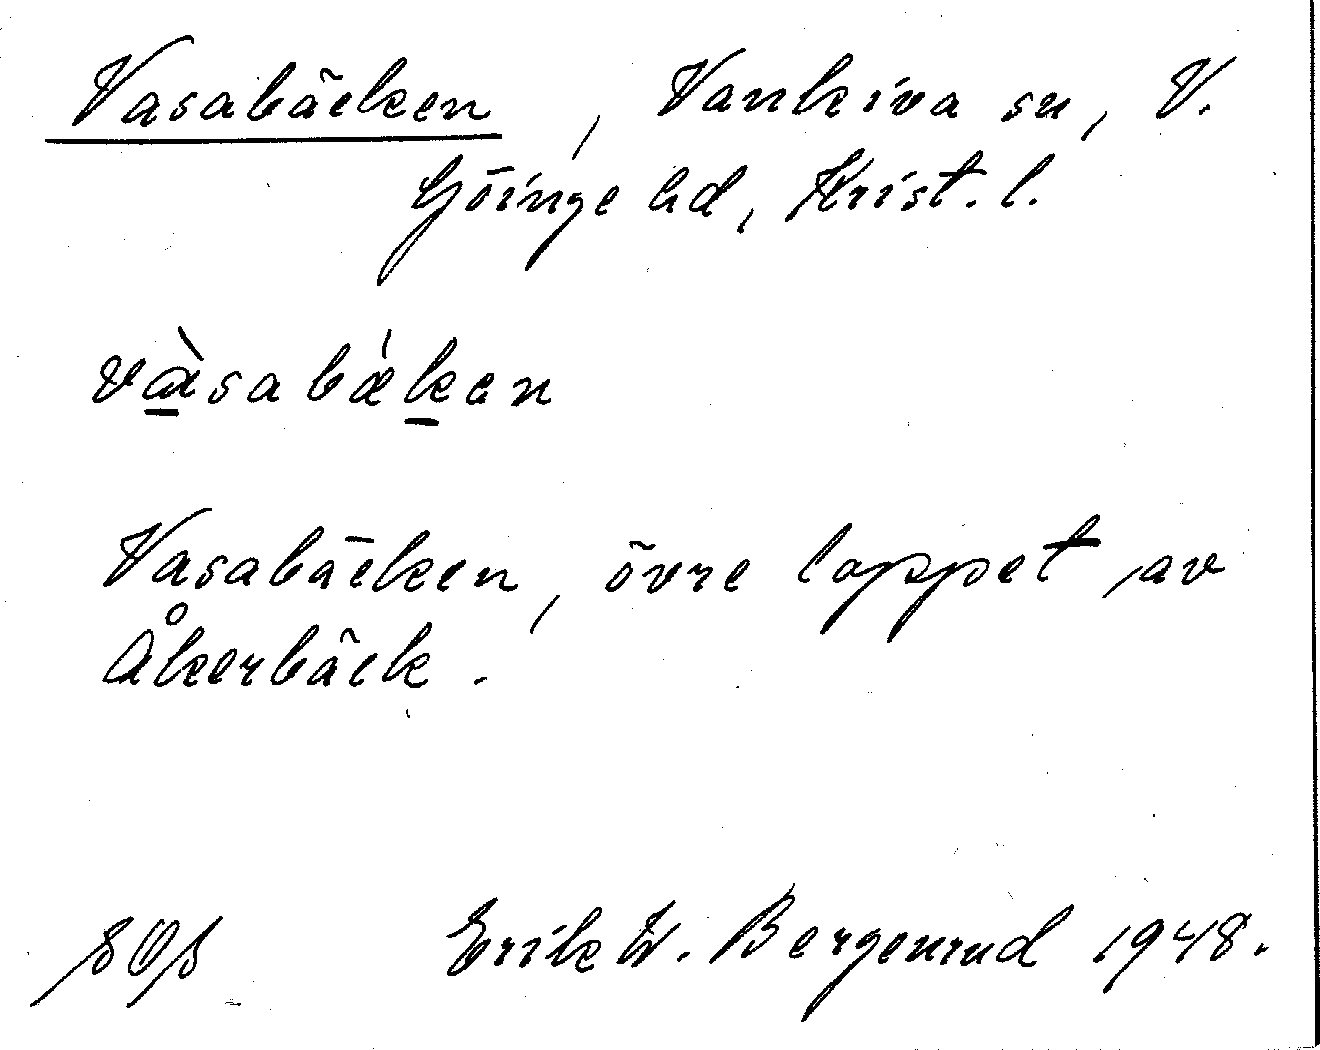 Vasabäcken, Vankiva sn, V.
Göinge hd, Krist. l.
vàsabǽken
Vasabäcken, övre loppet av
Åkerbäck.
Erik W. Bergenrud 1948.